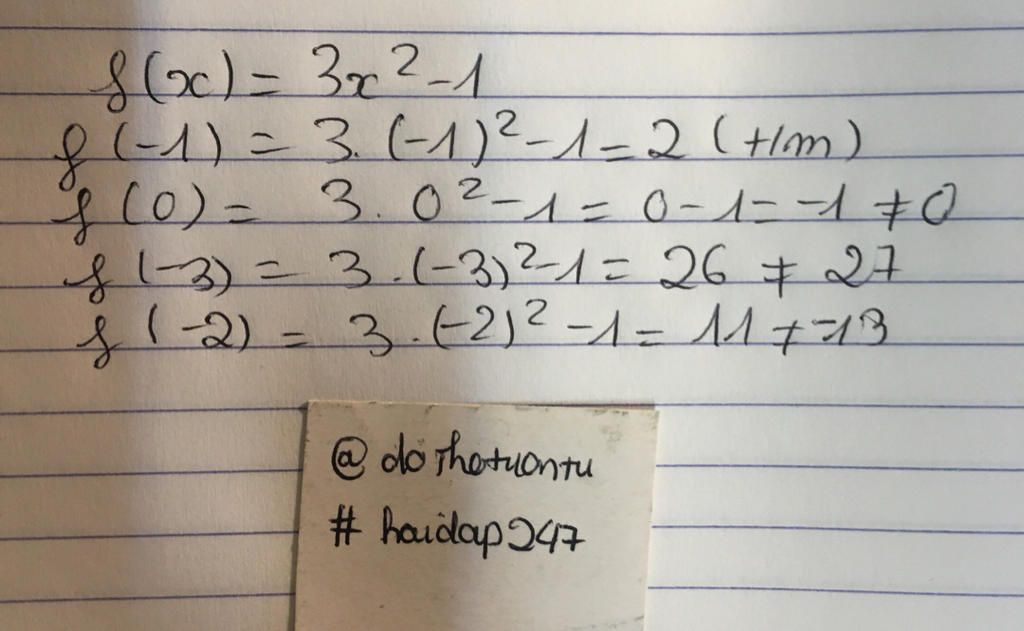 f(x) = 3x² - 1
f(-1) = 3.(-1)² - 1 = 2 (t/m)
f(0) = 3.0² - 1 = 0 - 1 = -1 ≠ 0
f(-3) = 3.(-3)² - 1 = 26 ≠ 27
f(-2) = 3.(-2)² - 1 = 11 ≠ -13
@ dothotuantu
# hoidap247